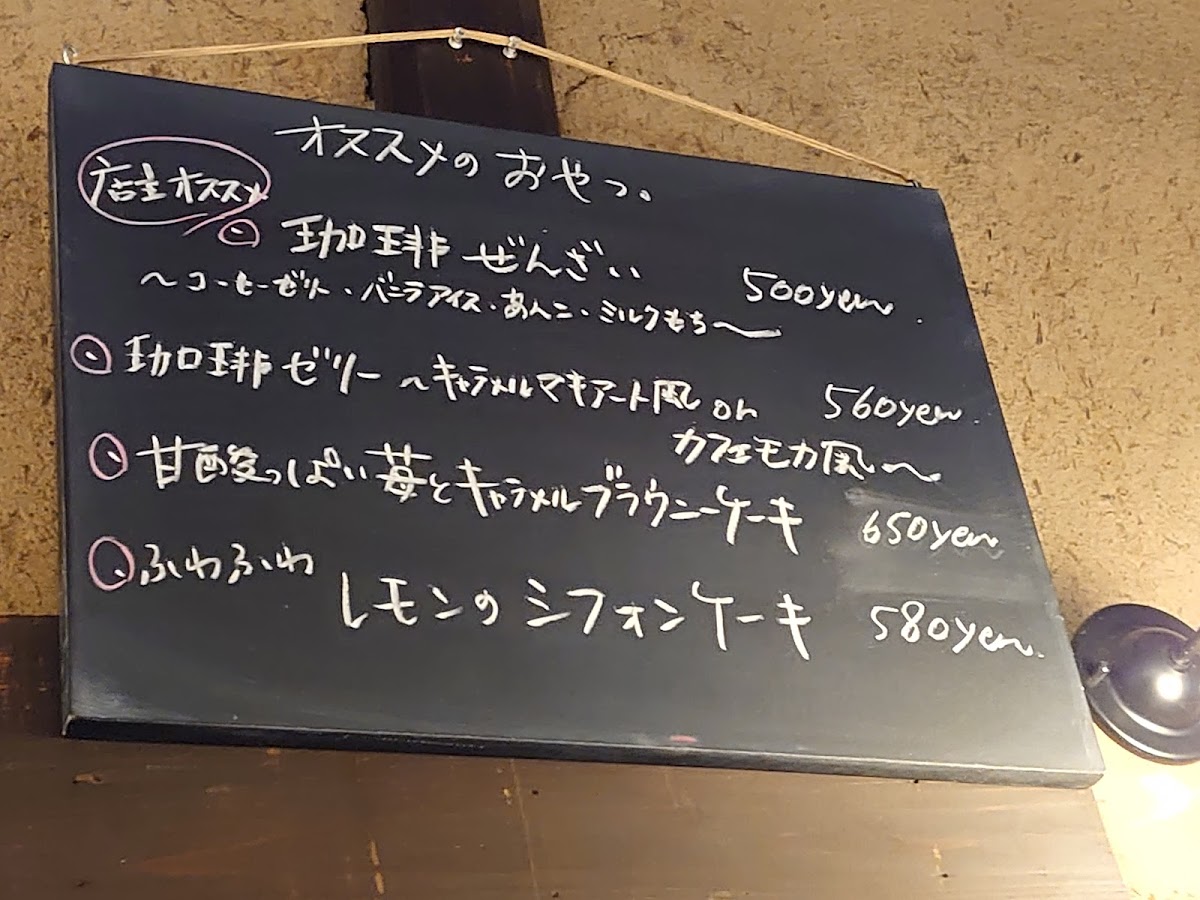 オススメの おやつ。
店主オススメ
珈琲 ぜんざい 500yen.
〜コーヒーゼリー・バニラアイス・あんこ・ミルクもち〜
珈琲ゼリー 〜キャラメルマキアート風 or 560yen.
カフェモカ風〜
甘酸っぱい苺とキャラメルブラウニーケーキ 650yen
ふわふわ レモンの シフォンケーキ 580yen.